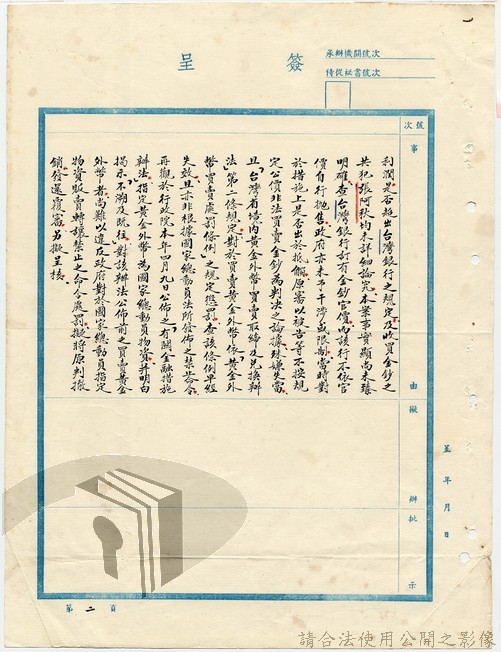 簽呈
承辦機關號次
侍從祕書號次
號次
事
由
擬
辦
批
示
呈 年 月 日
利潤是否超出台灣銀行之規定及收買金鈔之
共犯張阿秋均未詳細論究本案事實顯尚未臻
明確查台灣銀行訂有金鈔官價而該行不依官
價自行拋售政府亦未予干涉或限制當時對
於措施上是否出於抵觸原審以被告等不按規
定公價非法買賣金鈔為判決之論據殊嫌失當
且「台灣省境內黃金外幣買賣取締及兌換辦
法」第二條規定對於買賣黃金外幣依「黃金外
幣買賣處罰條例」之規定懲罰查該條例早經
失效且亦非根據國家總動員法所發佈之禁止命令
再觀於行政院本年四月九日公佈之有關金融措施
辦法指定黃金外幣為國家總動員物資并明白
揭示不溯及既往對該辦法公佈前之買賣黃金
外幣者尚難以違反政府對於國家總動員指定
物資販賣轉讓禁止之命令處罰擬將原判撤
銷發還覆審另擬呈核
第二頁
請合法使用公開之影像